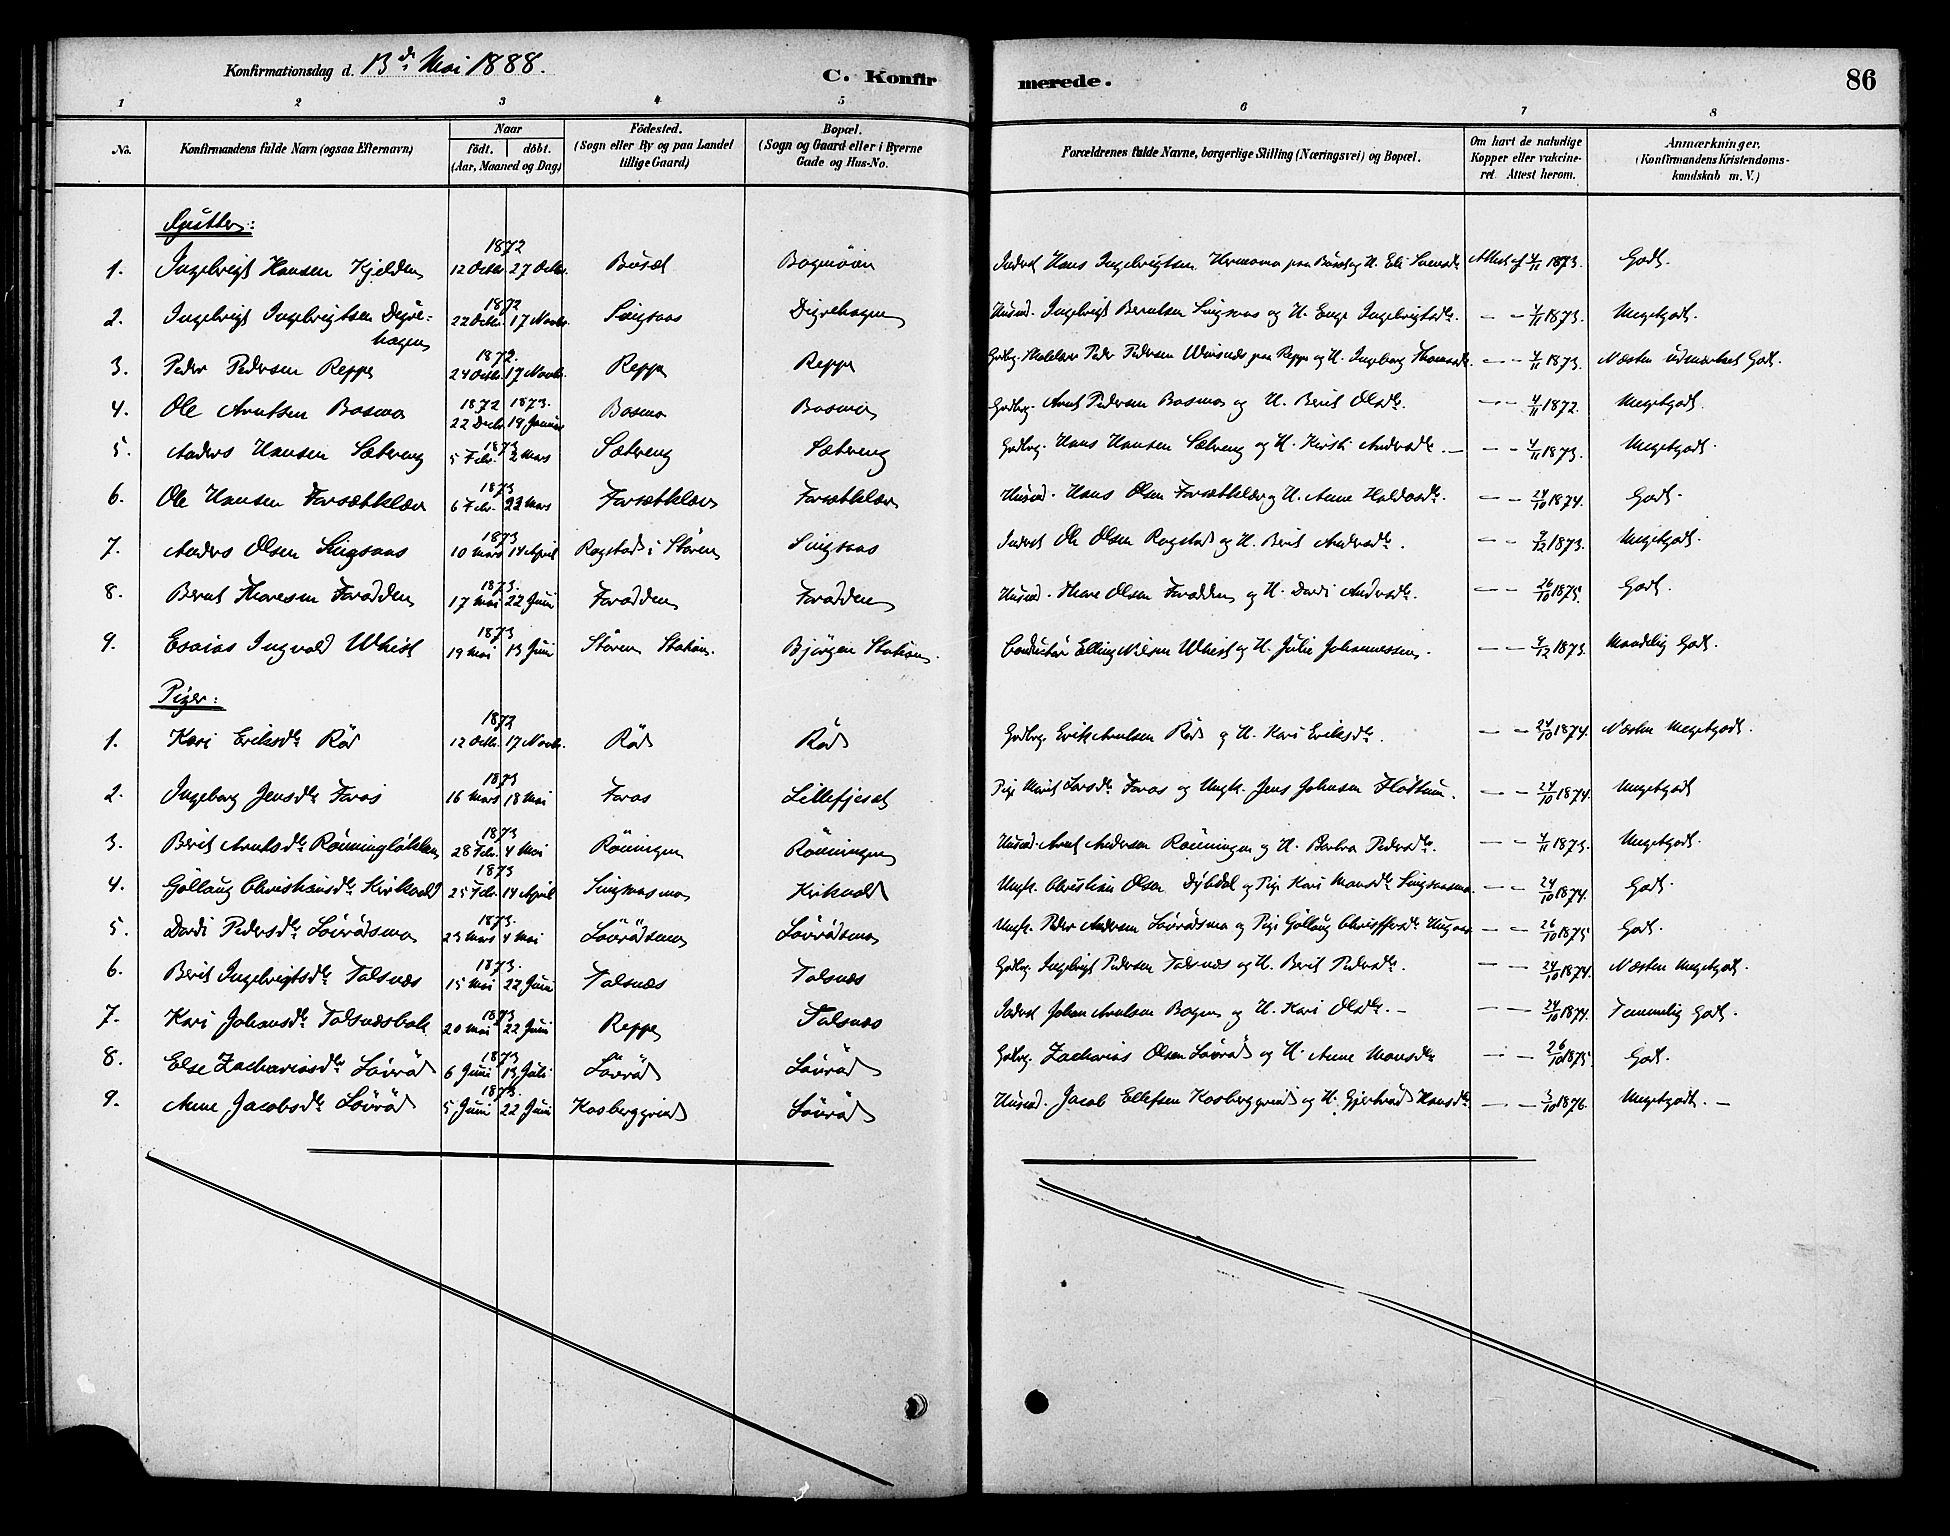 Konfirmationsdag d. 13de Mai 1888.
C. Konfir
merede.
86
1 2 3 4 5 6 7 8
No. Konfirmandens fulde Navn (ogsaa Efternavn) Naar født. døbt. (Aar, Maaned og Dag) Fødested. (Sogn eller By og paa Landet tillige Gaard) Bopæl. (Sogn og Gaard eller i Byerne Gade og Hus-No. Forældrenes fulde Navne, borgerlige Stilling (Næringsvei) og Bopæl. Om havt de naturlige Kopper eller vakcineret. Attest herom. Anmærkninger. (Konfirmandens Kristendomskundskab m. V.)
Gutter:
1. Ingebrigt Hansen Kjelden 1872 12 Octbr. 27 Octbr. Busæt Hans Ingebrigtsen Attest af 4/11 1873. Godt.
2. Ingebrigt Ingebrigtsen Digre- 1872 22 Octbr. 17 Novbr. Singsaas Digrehagen Husmd. Ingebrigt Berntsen Singsaas og H. Ingebrigtsdtr. — — 4/11 1873. Megetgodt.
hagen
3. Peder Pedersen Reppe 1872. 24 Octbr. 17 Novbr. Reppe Reppe Peder Pedersen paa Reppe og H. Ingeborg — — 4/11 1873. Næsten udmærket Godt.
4. Ole Arntsen Bosmo 1872 1873. 22 Decbr. 19 Januar Bosmo Bosmo Gdbrg. Arnt Pedersen Bosmo og H. Berit Olsdtr. — — 4/11 1872. Megetgodt.
5. Anders Hansen Sætereng 1873 5 Febr. 2 Mars Sætereng Sætereng Gdbrg. Hans Hansen Sætereng og H. Kirsti Andersdtr. — — — 4/11 1873. Megetgodt.
6. Ole Hansen Forsætkleven 1873 6 Febr. 23 Mars Forsætkleven Forsætkleven Husmd. Hans Olsen Forsætkleven og H. Anne — — 24/10 1874. Godt.
7. Anders Olsen Singsaas 1873 10 Mars 14 April Rogstad i Støren Singsaas Inderst Ole Olsen Rogstad og H. Berit Andersdtr. — — 9/12 1873. Megetgodt.
8. Bernt Thoresen Forodden 1873. 17 Mai 22 Juni Forodden Forodden Husmd. Thore Olsen Forodden og H. Dordi Andersdtr. — — 26/10 1875. Godt.
9. Esaias Ingvald Whist 1873 19 Mai 13 Juni Støren Station. Bjørgen Station. Conductør Elling Nilsen Whist og H. Julie Johannessen. — — 9/12 1873. Maadelig Godt.
Piger:
1. Kari Eriksdtr. Rød 1872 12 Octbr. 17 Novbr. Rød Rød Gdbrg. Erik Arntsen Rød og H. Kari Eriksdtr. — — 24/10 1874. Næsten Megetgodt.
2. Ingeborg Jensdtr. Foros 1873 16 Mars 18 Mai Foros Lillefjeset Pige Marit Larsdtr. Foros og Ungk. Jens Johnsen Fløttum. — — 24/10 1874. Megetgodt
3. Berit Arntsdtr. Rønningsløkken 1873 28 Febr. 4 Mai Rønningen Rønningen Husmd. Arnt Andersen Rønningen og H. Barbra Pedersdtr. — — 4/11 1873. Megetgodt.
4. Gollaug Christiansdtr. Kirkvold 1873 25 Febr. 14 April Singsaasmo Kirkvold Ungk. Christian Olsen Dybdal og Pige Kari Monsdtr. Singsaasmo. — — 24/10 1874. Godt.
5. Dordi Pedersdtr. Løvrødsmo 1873. 23 Mars 4 Mai Løvrødsmo Løvrødsmo Ungk. Peder Andersen Løvrødsmo og Pige Gollaug — — 26/10 1875 Godt.
6. Berit Ingebrigtsdtr. Talsnæs 1873. 15 Mai 22 Juni Talsnæs Talsnæs Gdbrg. Ingebrigt Pedersen Talsnæs og H. Berit Pedersdtr. — — 24/10 1874. Næsten Megetgodt.
7. Kari Johansdtr. Talsnæsbak 1873 20 Mai 22 Juni Reppe Talsnæs Inderst Johan Arntsen og H. Kari Olsdtr. — — — 24/10 1874. Temmelig Godt.
8. Else Zachariasdtr. Løvrød 1873 6 Juni 13 Juli Løvrød Løvrød Gdbrg. Zacharias Olsen Løvrød og H. Anne Monsdtr — — 26/10 1875 Godt.
9. Anne Jacobsdtr. Løvrød 1873. 5 Juni 22 Juni Kosberggrind Løvrød Husmd. Jacob Ellefsen Kosberggrind og H. Gjertrud Hansdtr. — — 3/10 1876. Megetgodt. —